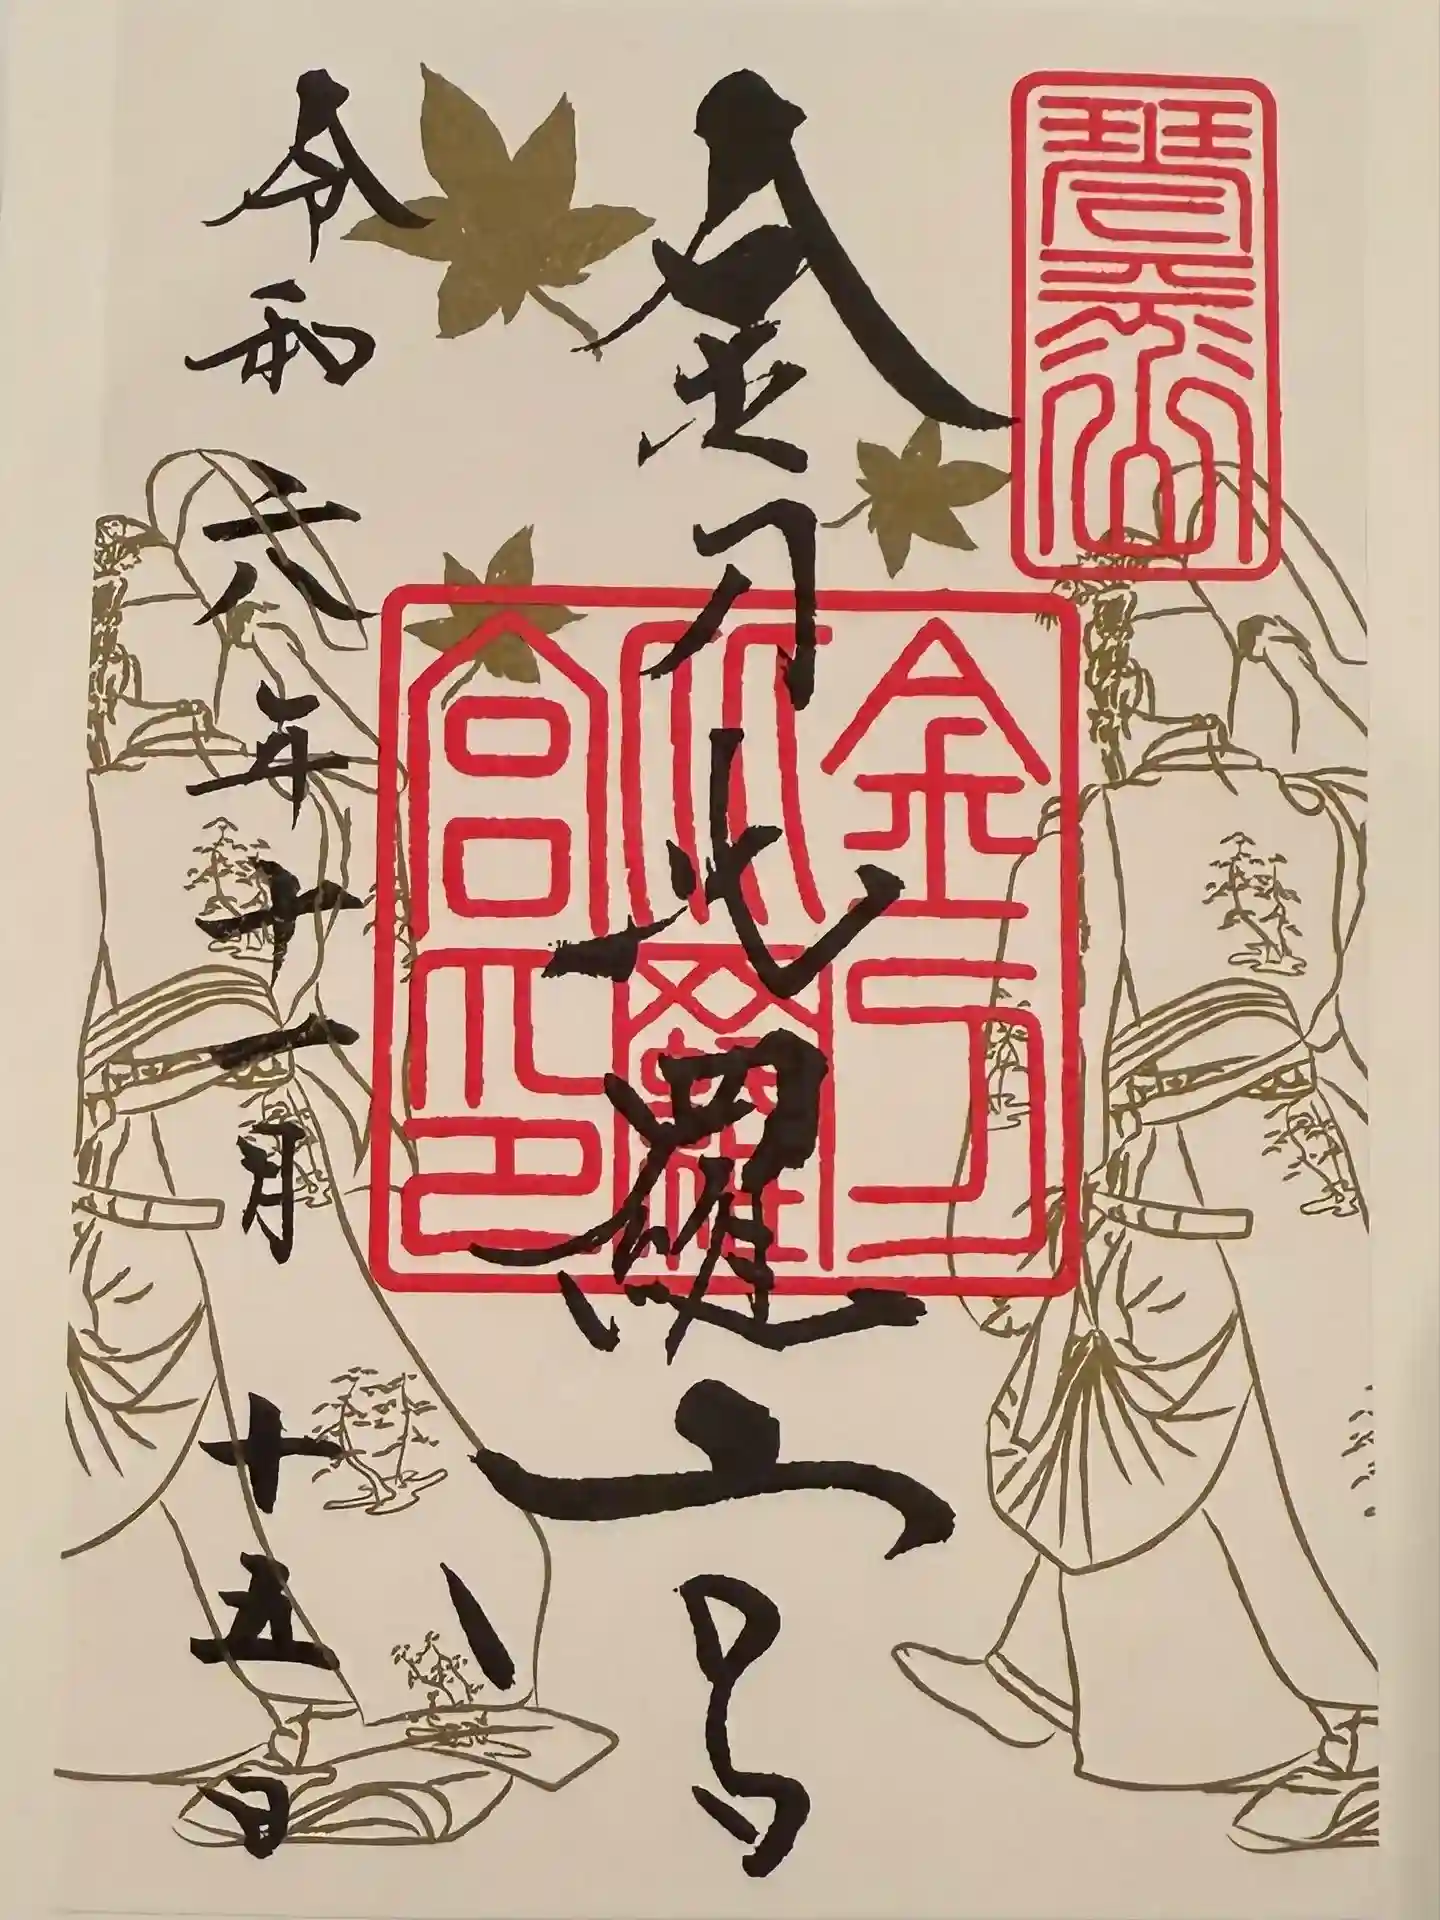 琴平山
金刀比羅宮
金刀比羅宮印
令和六年十一月十五日